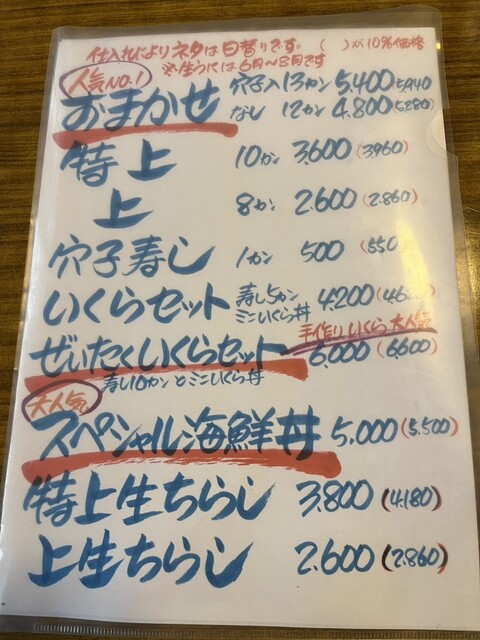 仕入れによりネタは日替りです。( )が10%価格
※生うには6月〜8月です
人気NO.1
おまかせ 穴子入 13カン 5,400 (5,940)
なし 12カン 4,800 (5,280)
特上 10カン 3,600 (3,960)
上 8カン 2,600 (2,860)
穴子寿し 1カン 500 (550)
いくらセット 寿し5カン ミニいくら丼 4,200
手作りいくら大人気
ぜいたくいくらセット 6,000 (6600)
寿し10カンとミニいくら丼
大人気
スペシャル海鮮丼 5,000 (5,500)
特上生ちらし 3,800 (4,180)
上生ちらし 2,600 (2,860)